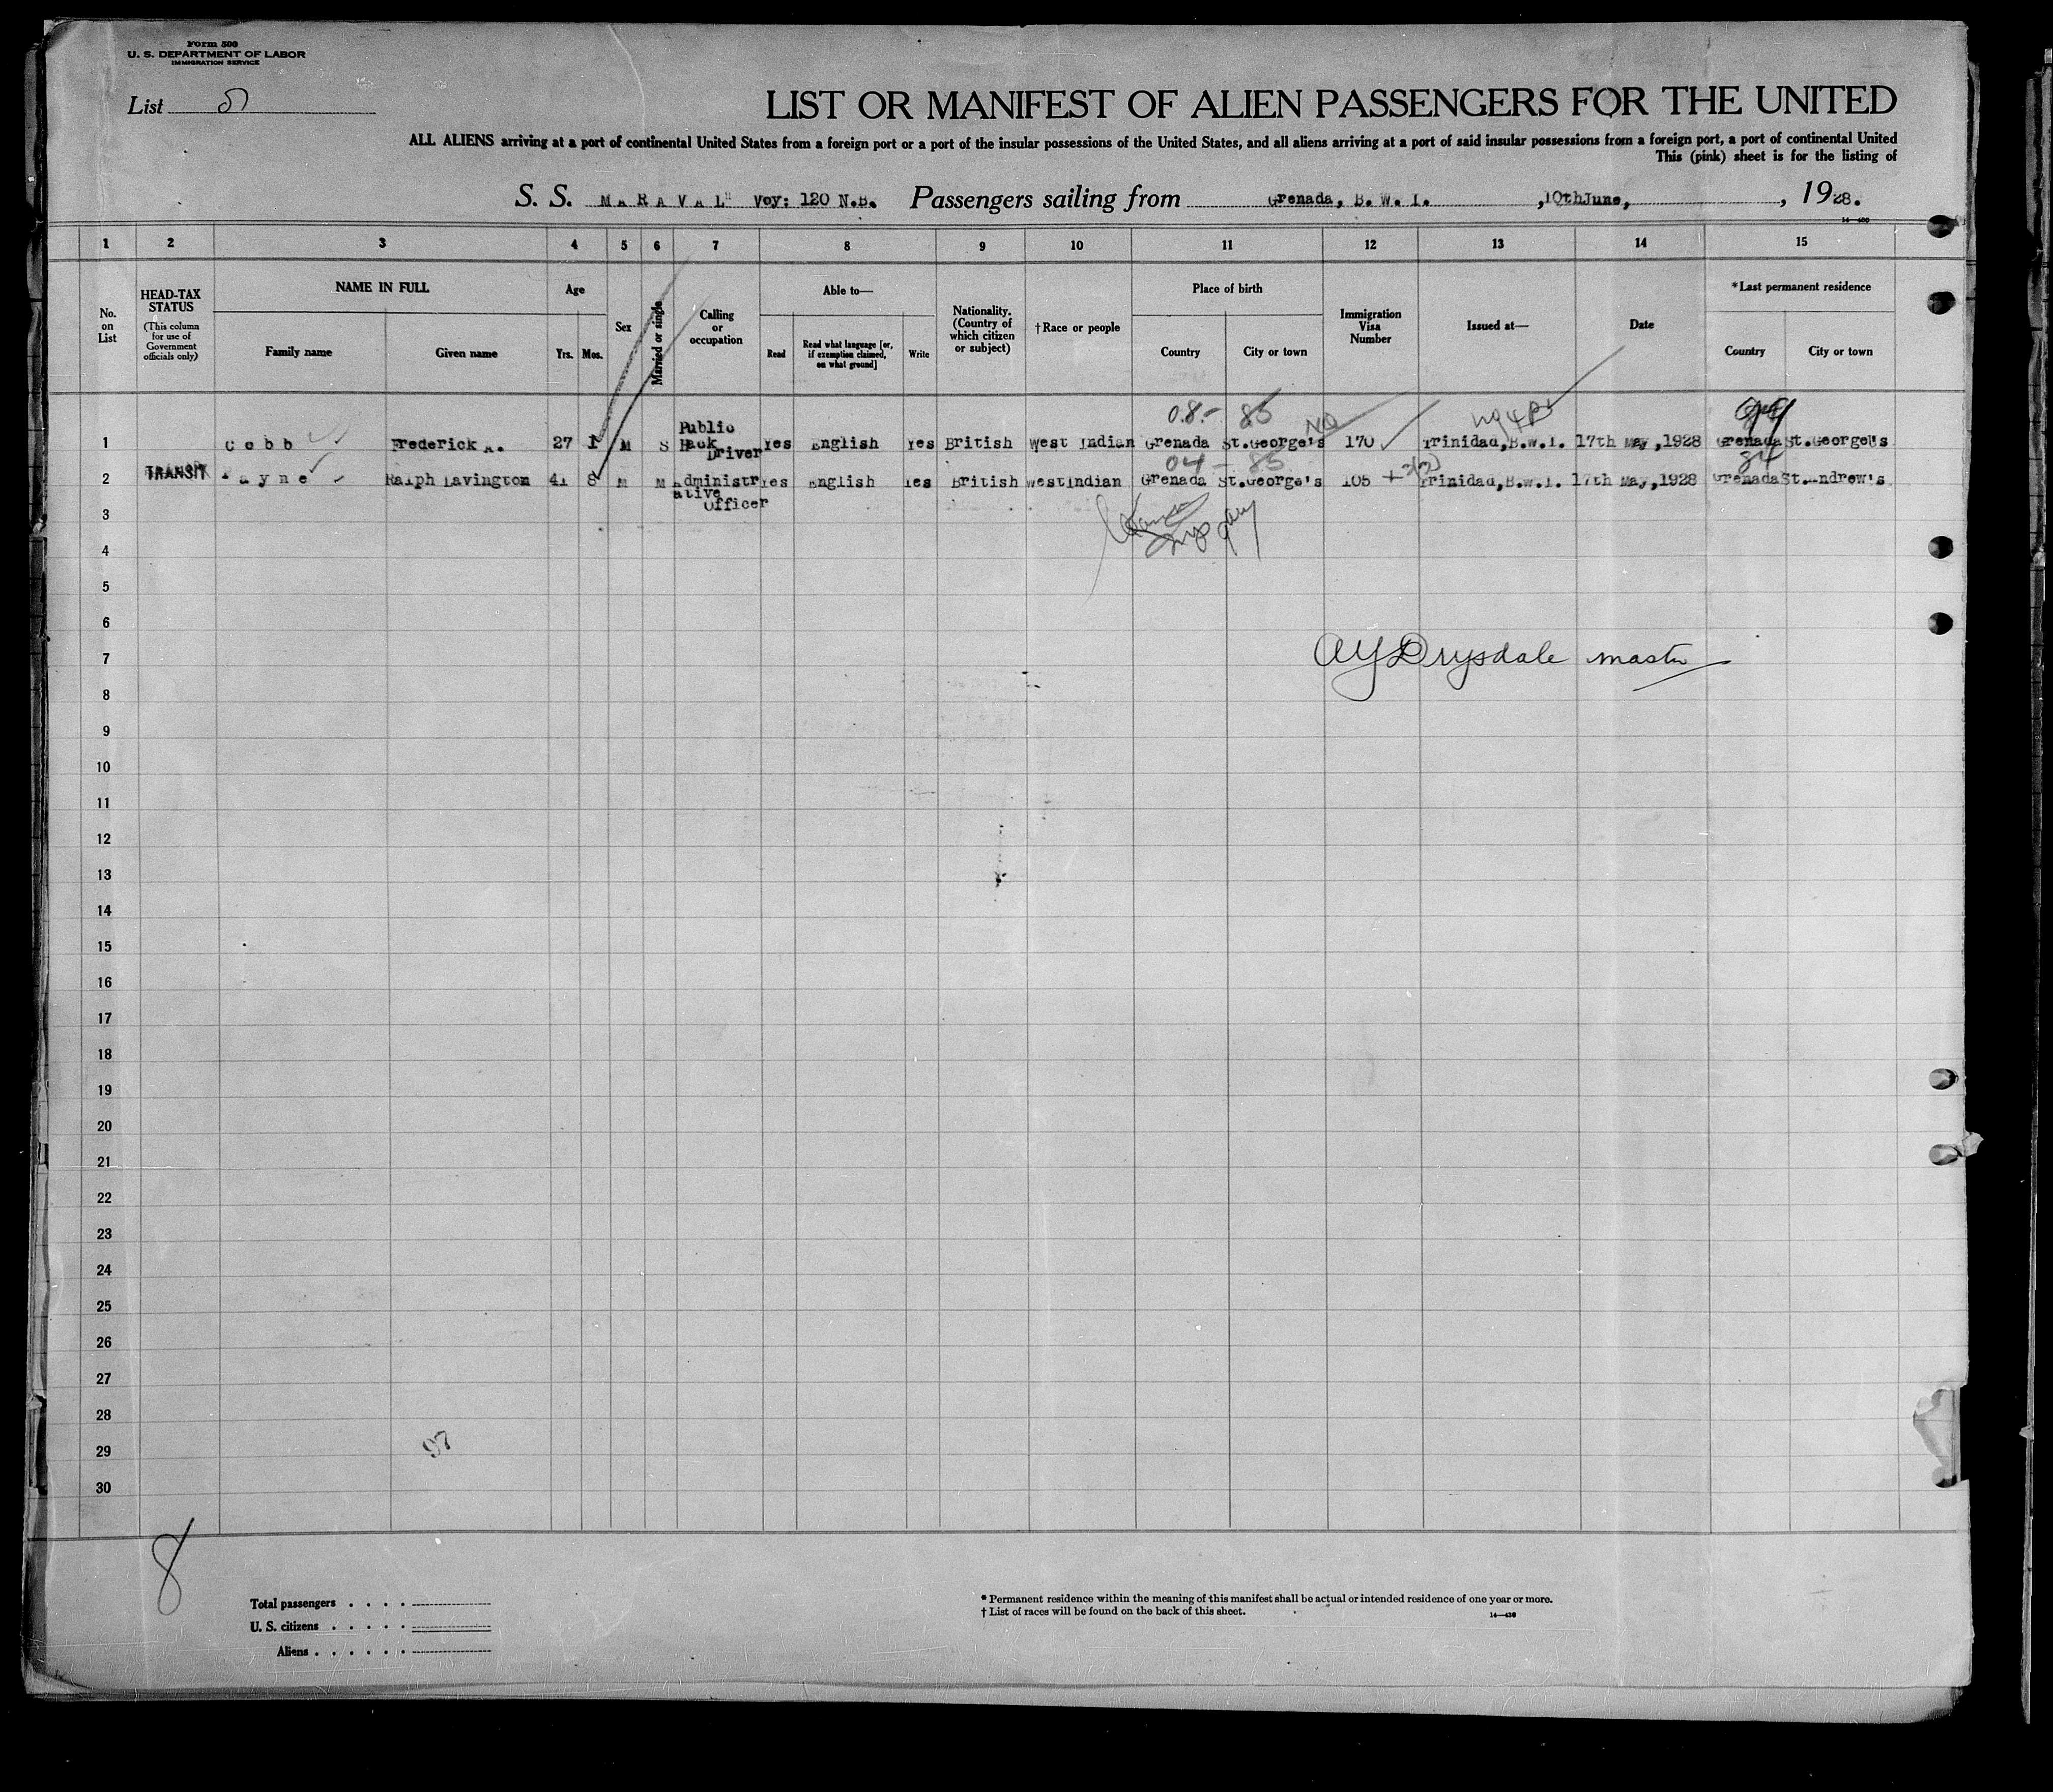 Form 500
U. S. DEPARTMENT OF LABOR
IMMIGRATION SERVICE
List
LIST OR MANIFEST OF ALIEN PASSENGERS FOR THE UNITED
ALL ALIENS arriving at a port of continental United States from a foreign port or a port of the insular possessions of the United States, and all aliens arriving at a port of said insular possessions from a foreign port, a port of continental United
This (pink) sheet is for the listing of
S. S. M A R A V A L" Voy: 120 N.B. Passengers sailing from Grenada, B. W. I. ,10thJune, , 1928.
1 2 3 4 5 6 7 8 9 10 11 12 13 14 15
No. on List
HEAD-TAX STATUS (This column for use of Government officials only)
NAME IN FULL
Family name Given name
Age
Yrs. Mos.
Sex
Married or single
Calling or occupation
Able to—
Read Read what language [or, if exemption claimed, on what ground] Write
Nationality. (Country of which citizen or subject)
†Race or people
Place of birth
Country City or town
Immigration Visa Number
Issued at—
Date
*Last permanent residence
Country City or town
08 - 85 NQ
1 Cobb Frederick A. 27 1 M S Public Hack Driver Yes English Yes British West Indian Grenada St.George's 170 Trinidad,B.W.I. 17th May,1928 Grenada St.George's
04 - 85 84
2 TRANSIT Payne Ralph Lavington 41 8 M M Administrative Officer Yes English Yes British WestIndian Grenada St.George's 105 Trinidad,B.W.I. 17th May,1928 Grenada St.Andrew's
3
4
5
6
7
AY Drysdale master
8
9
10
11
12
13
14
15
16
17
18
19
20
21
22
23
24
25
26
27
28
29
97
30
8
Total passengers . . . .
U. S. citizens . . . . .
Aliens . . . . . .
* Permanent residence within the meaning of this manifest shall be actual or intended residence of one year or more.
† List of races will be found on the back of this sheet.
14—430